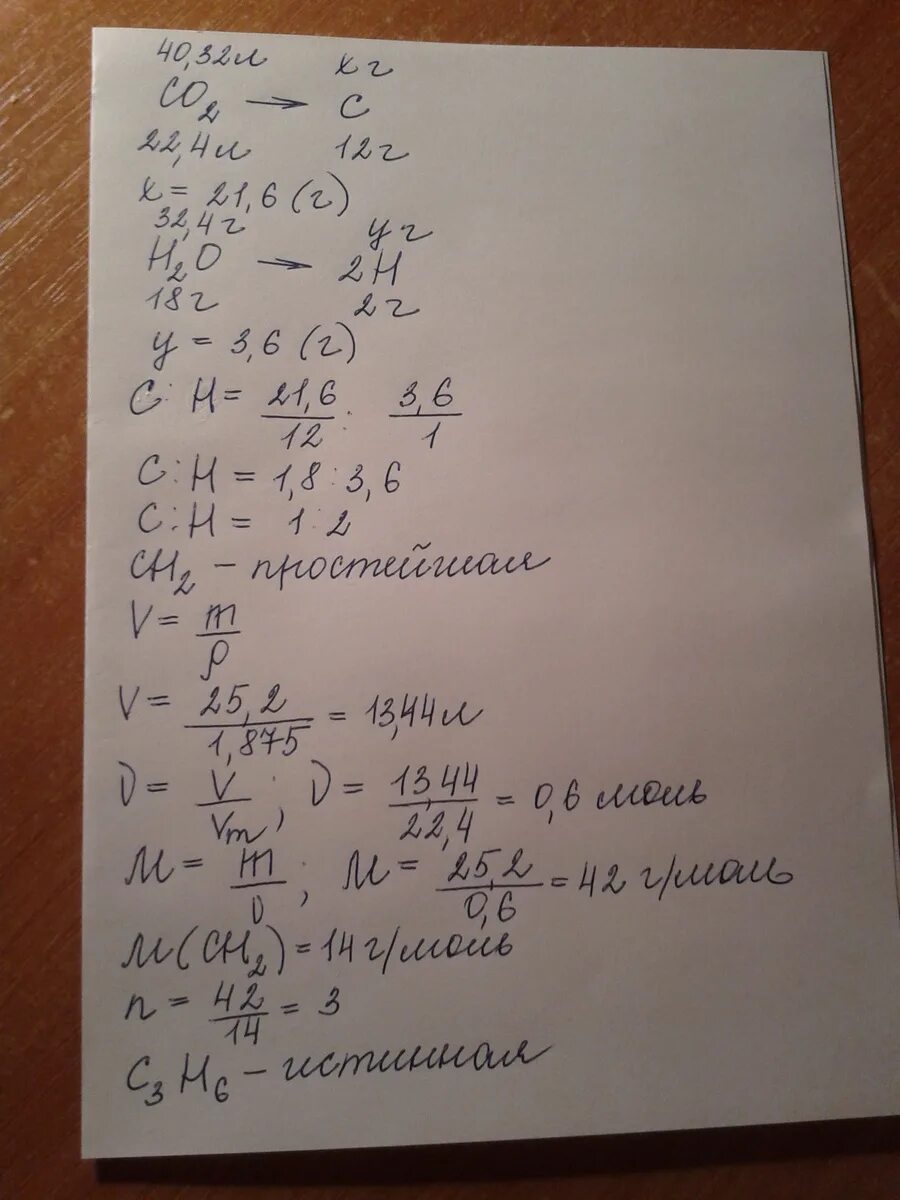 40,32л   х г
CO₂ → C
22,4л   12г
x = 21,6 (г)
32,4г   у г
H₂O → 2H
18г   2г
y = 3,6 (г)
C : H = 21,6/12 : 3,6/1
C : H = 1,8 : 3,6
C : H = 1 : 2
CH₂ – простейшая
V = m/ρ
V = 25,2/1,875 = 13,44л
ν = V/Vm ; ν = 13,44/22,4 = 0,6 моль
M = m/ν ; M = 25,2/0,6 = 42 г/моль
M(CH₂) = 14 г/моль
n = 42/14 = 3
C₃H₆ – истинная